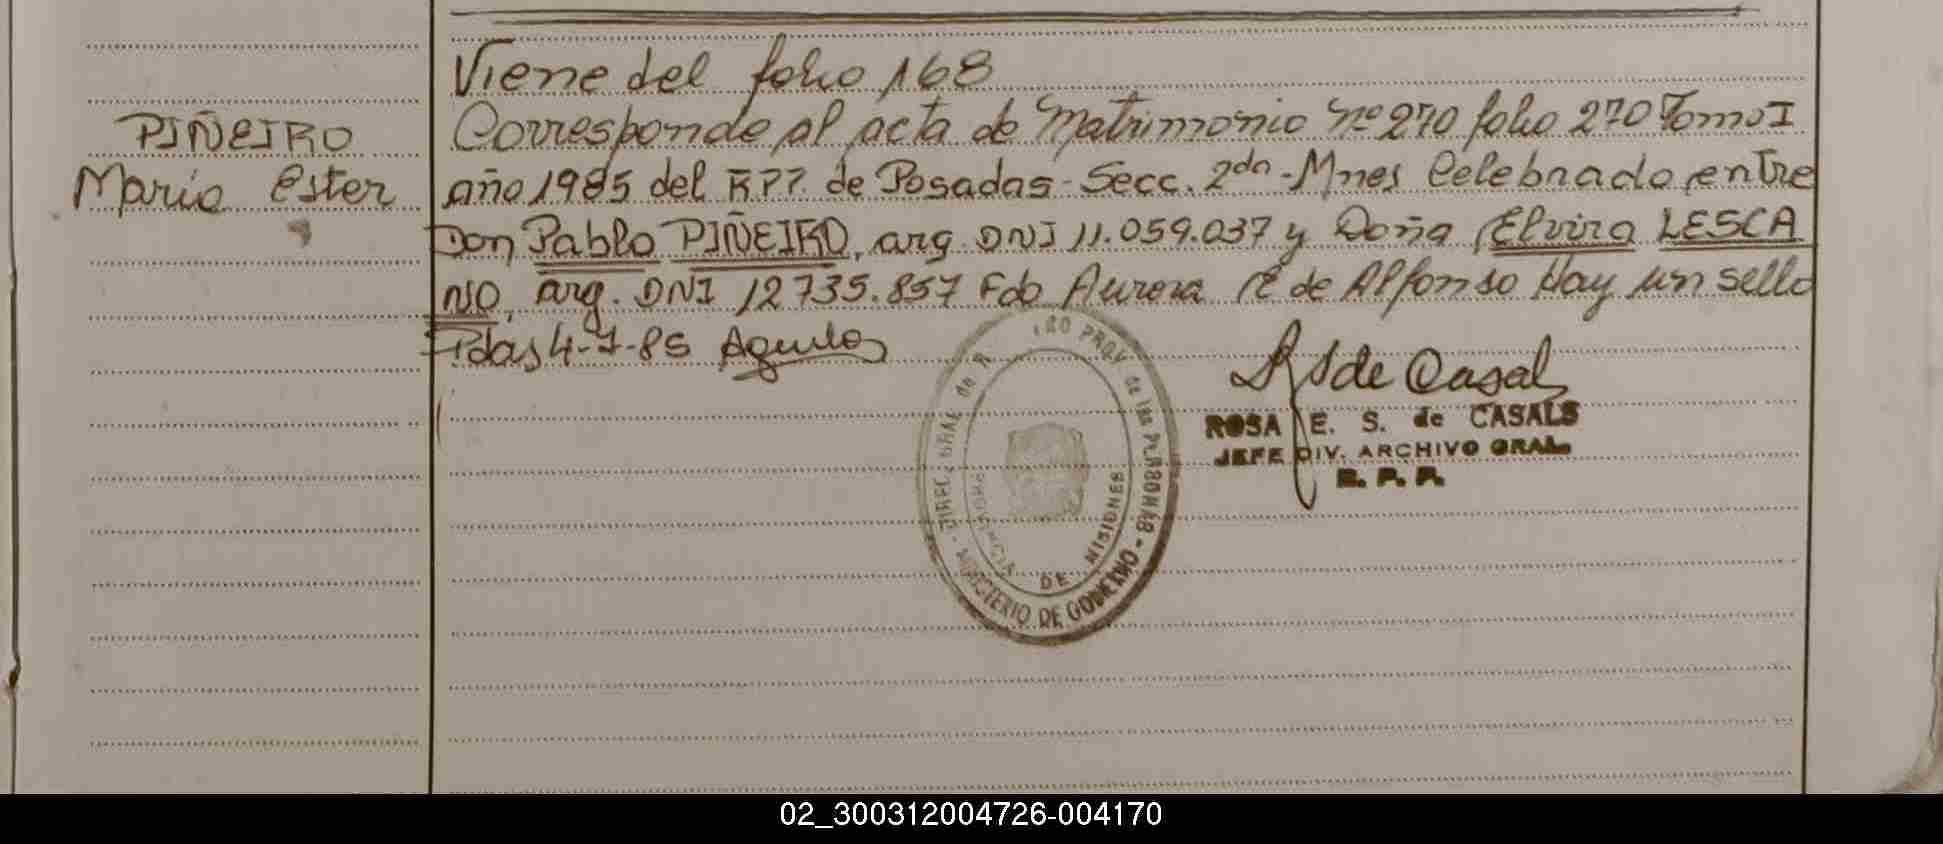 Viene del folio 168
PIÑEIRO
Maria Ester
Corresponde al acta de Matrimonio Nº 270 folio 270 Tomo I
año 1985 del R.P.P. de Posadas - Secc. 2da - Mnes Celebrado entre
Don Pablo PIÑEIRO, arg. DNI 11.059.037 y Doña Elvira LESCA
NO, arg. DNI 12735.857 Fdo Aurora R de Alfonso Hay un sello
Pdas 4-7-85
de Casals
ROSA E. S. de CASALS
JEFE DIV. ARCHIVO GRAL.
R. P. P.
PROV de las PERSONAS - MINISTERIO DE GOBIERNO
DE MISIONES
02_300312004726-004170